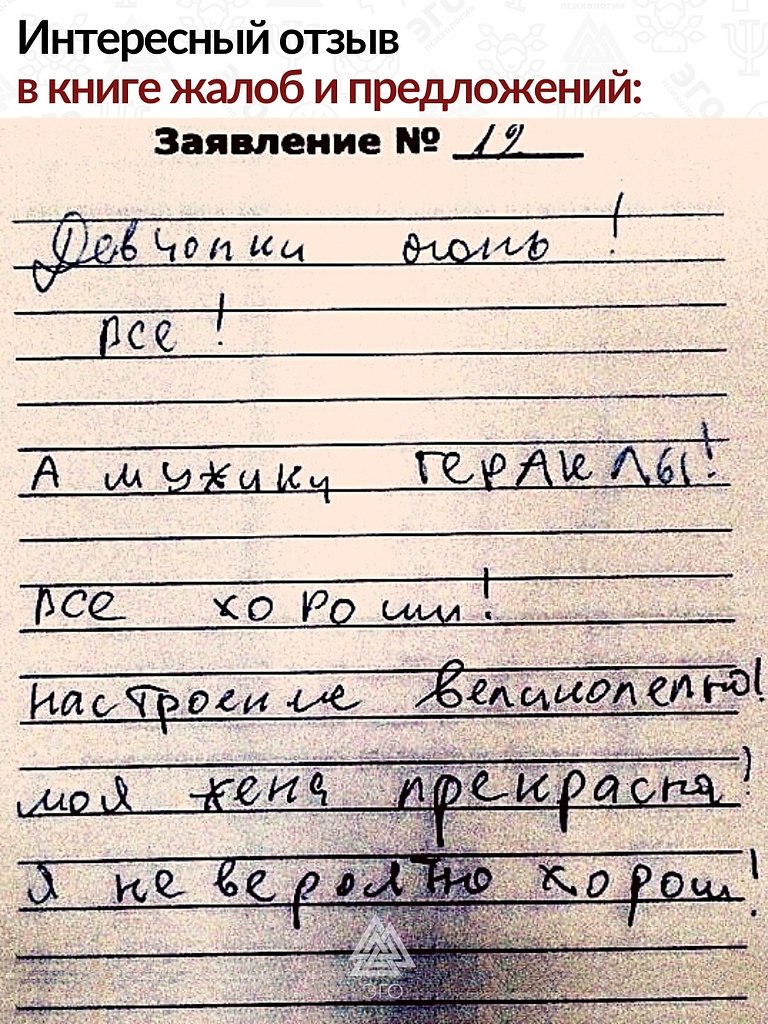 Интересный отзыв
в книге жалоб и предложений:
Заявление № 12
Девчонки огонь!
все!
А мужики ГЕРАКЛЫ!
все хороши!
настроение великолепно!
моя жена прекрасна!
я не вероятно хорош!
ЭГО